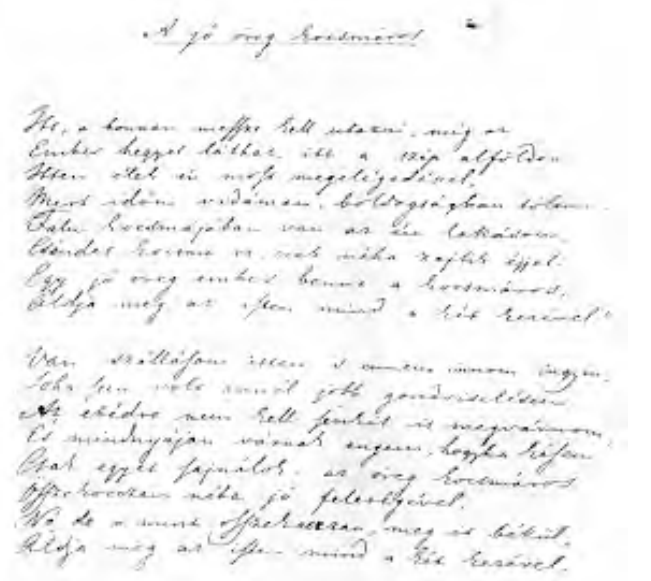 A jó öreg kocsmáros
Itt, a honnan messze kell utazni, míg az
Ember hegyet láthat, itt a szép alföldön
Itten élek én most megelégedéssel,
Mert időm vidáman, boldogságban töltöm.
Falu kocsmájában van az én lakásom,
Csendes kocsma ez, csak néha zajlik éjjel.
Egy jó öreg ember benne a kocsmáros,
Áldja meg az isten mind a két kezével!
Van szállásom itten s ennem innom ingyen.
Soha sem volt ennél jobb gondviselésem
Az ebédre nem kell senkit is megvárnom,
És mindnyájan várnak engem, hogyha késem
Csak egyet sajnálok: az öreg kocsmáros
Összekoccan néha jó feleségével.
No de a mint összekoccan, meg is békül,
Áldja meg az isten mind a két kezével.